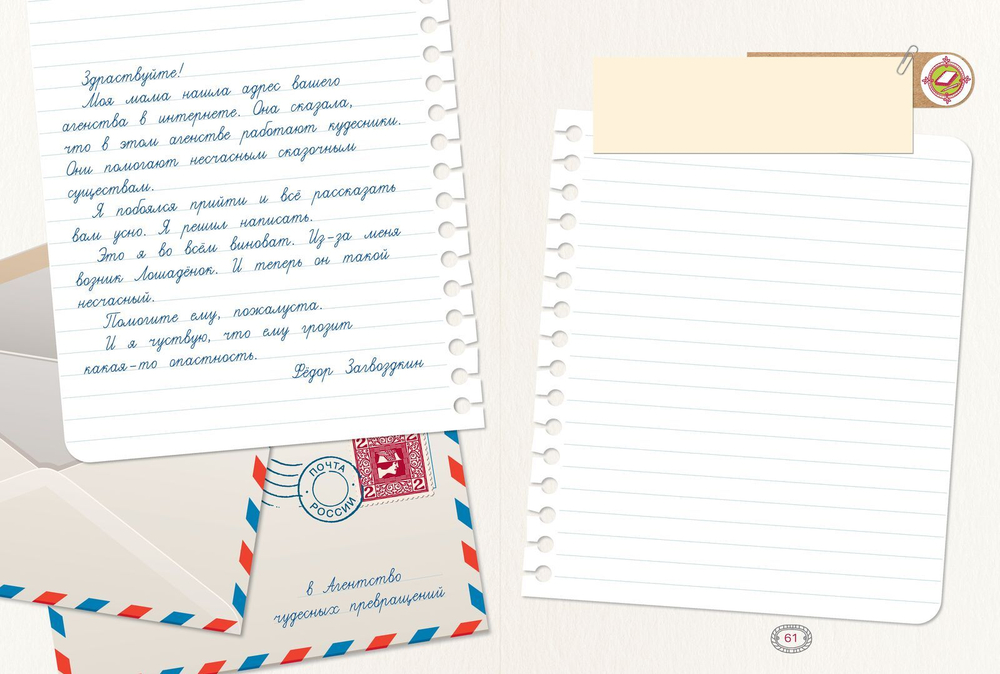 Здраствуйте!
Моя мама нашла адрес вашего
агенства в интернете. Она сказала,
что в этом агенстве работают кудесники.
Они помогают несчасным сказочным
существам.
Я побоялся прийти и всё рассказать
вам усно. Я решил написать.
Это я во всём виноват. Из-за меня
возник Лошадёнок. И теперь он такой
несчасный.
Помогите ему, пожалуста.
И я чуствую, что ему грозит
какая-то опастность.
Фёдор Загвоздкин
2 2
2 2
ПОЧТА
РОССИИ
в Агентство
чудесных превращений
61